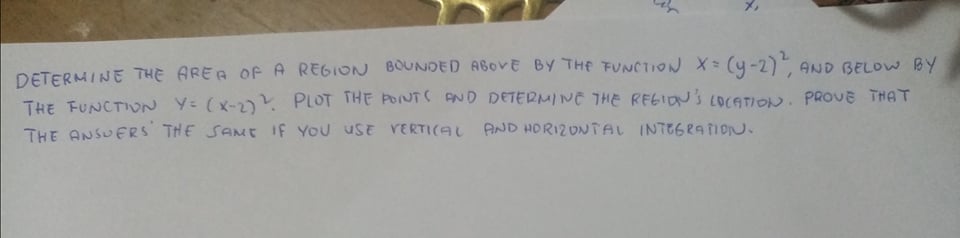 DETERMINE THE AREA OF A REGION BOUNDED ABOVE BY THE FUNCTION X = (y-2)², AND BELOW BY
THE FUNCTION Y = (X-2)². PLOT THE POINTS AND DETERMINE THE REGION'S LOCATION. PROVE THAT
THE ANSWERS' THE SAME IF YOU USE VERTICAL AND HORIZONTAL INTEGRATION.